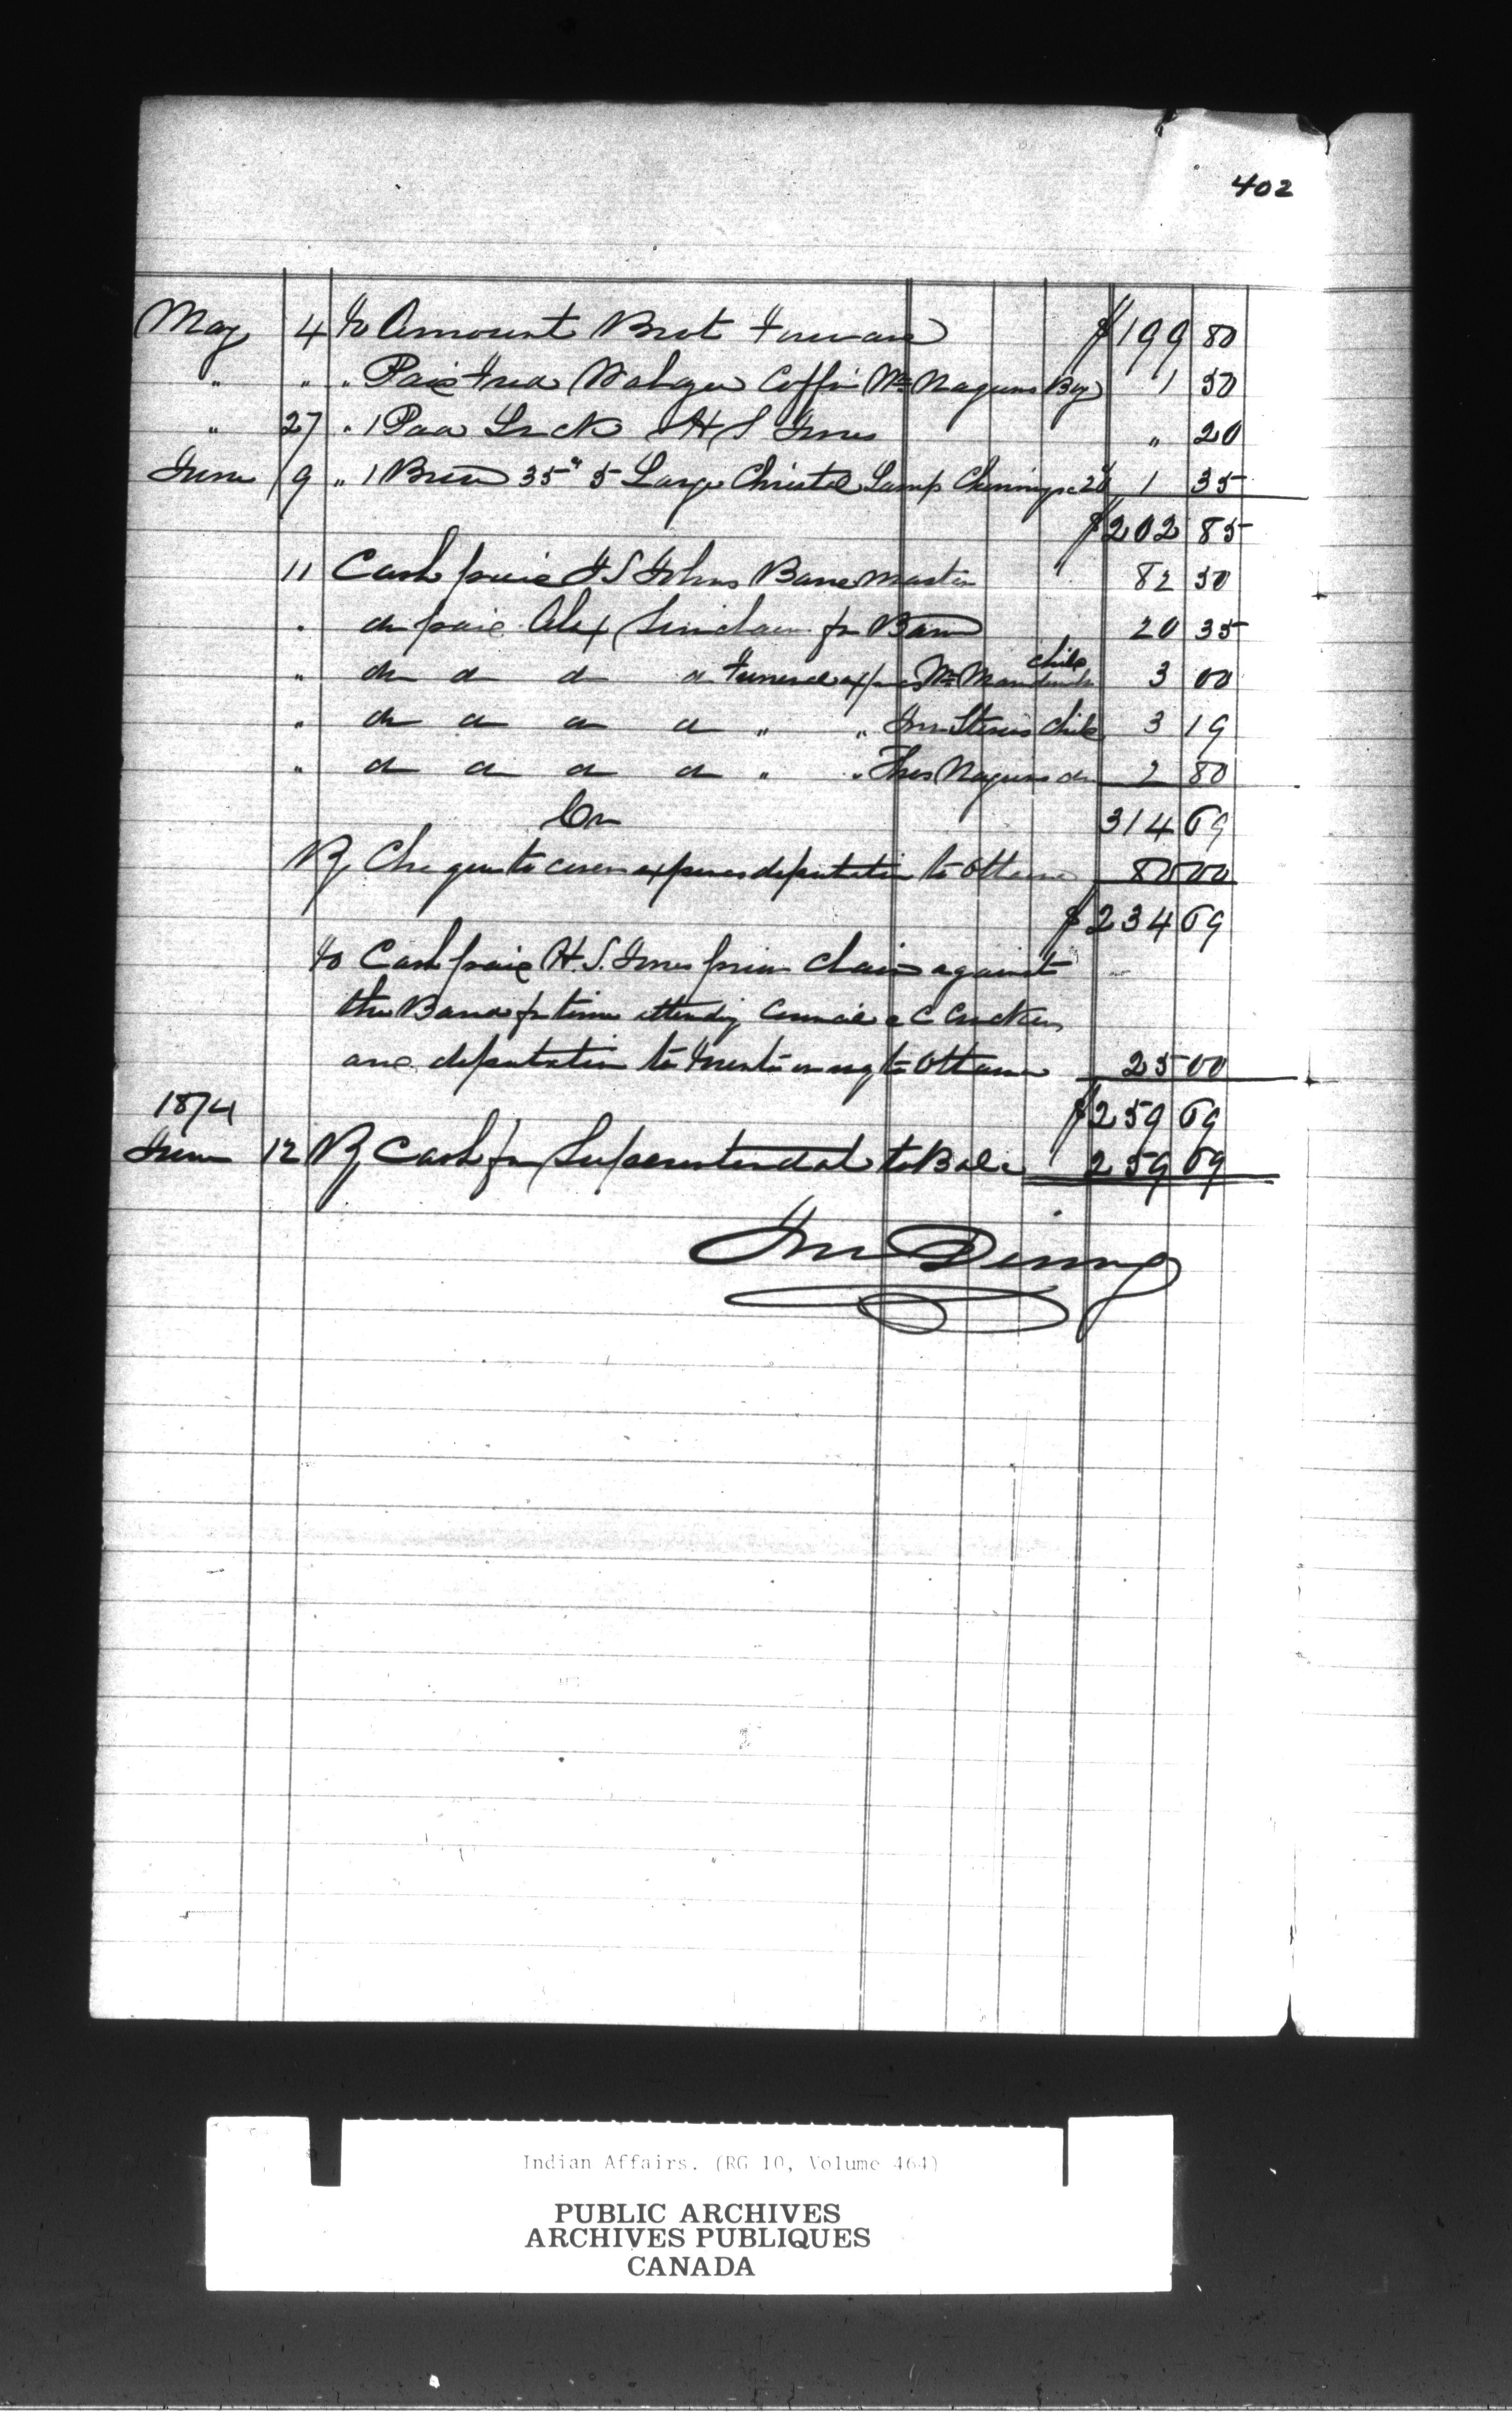 402
May 4 To Amount Brot Forward $199 80
" " " Paid Fred Coffin Wm Naguns Boy 1 50
" 27 " 1 Pad Lock H S Jones " 20
June 9 " 1 35" 5 Large Christal Lamp Chimneys 20 1 35
$202 85
11 Cash paid Band Master 82 50
" do paid Alex Sinclair for Band 20 35
child
" do do do do Funeral expenses Wm 3 00
" do do do do " " Jno child 3 19
" do do do do " " Thos Naguns do 2 80
Cr 314 69
By Cheque to cover expenses deputation to Ottawa 80 00
$234 69
To Cash paid H. S. Jones claim against
the Band for time attending Council
and deputation to to Ottawa 25 00
1874 $259 69
June 12 By Cash from Superintendent to Balc 259 69
Jno Dining
Indian Affairs. (RG 10, Volume 464)
PUBLIC ARCHIVES
ARCHIVES PUBLIQUES
CANADA